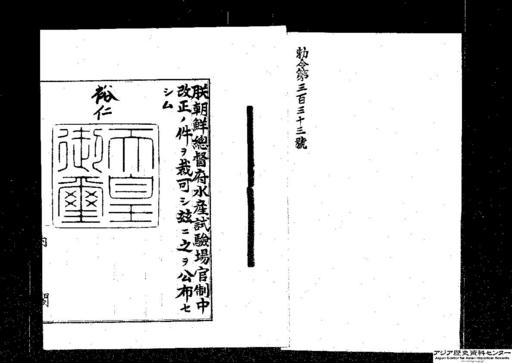 勅令第三百三十三號
朕朝鮮總督府水產試驗場官制中
改正ノ件ヲ裁可シ玆ニ之ヲ公布セ
シム
裕仁
天皇御璽
内閣
アジア歴史資料センター
Japan Center for Asian Historical Records